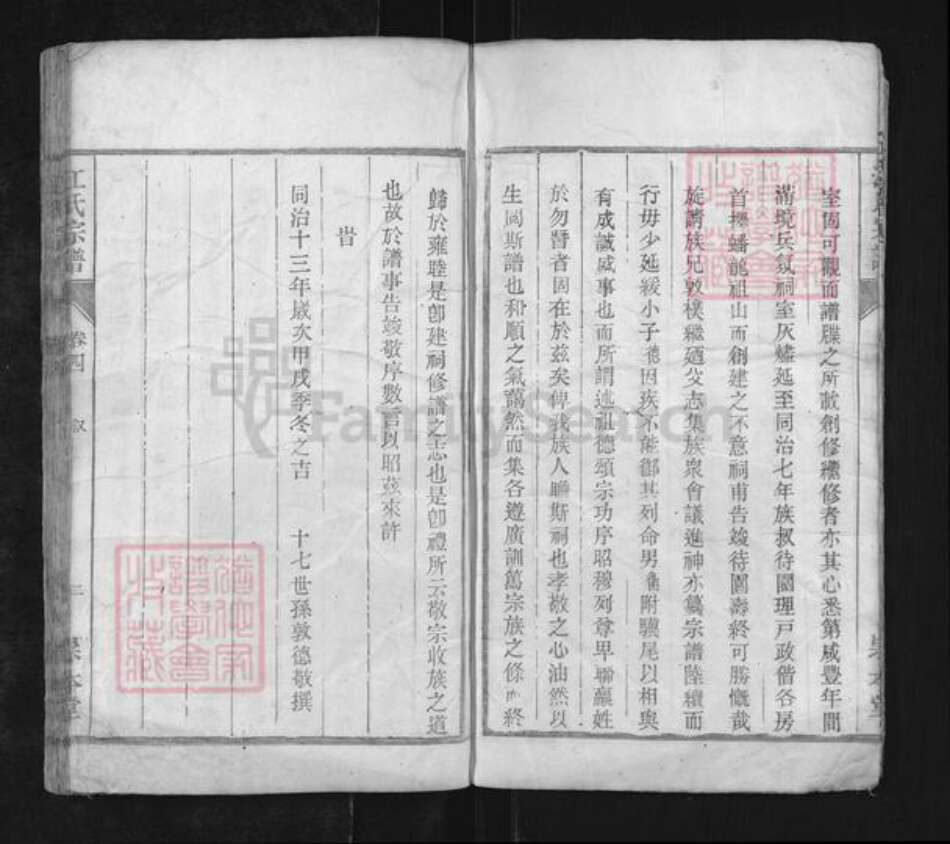 室固可觀而譜牒之所啟創修繼修者亦其心悉第咸豐年間
滿境兵氛祠室灰燼延至同治七年族叔待園理戶政偕各房
首摟蟠龍祖山而創建之不意祠甫告竣待園壽終可勝慨哉
旋請族兄敦樸繼廼父志集族衆會議進神亦纂宗譜陸續而
行毋少延緩小子德因疾不能御其列命男附驥尾以相與
有成誠盛事也而所謂述祖德頌宗功序昭穆列尊卑聯蘊姓
於勿替者固在於茲矣俾我族人瞻斯祠也孝敬之心油然以
生閱斯譜也和順之氣藹然而集各遵廣訓萬宗族之條而終
歸於雍睦是卽建祠修譜之志也是卽禮所云敬宗收族之道
也故於譜事告竣敬序數言以昭茲來許
旹
同治十三年歲次甲戌季冬之吉 十七世孫敦德敬撰
江氏宗譜 卷四 敘
FamilySearch